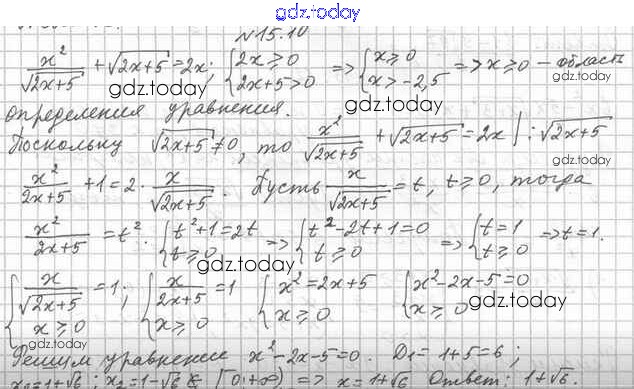 gdz.today
№15.10
x²/√(2x+5) + √(2x+5) = 2x; { 2x ≥ 0 2x+5 > 0 => { x ≥ 0 x > -2,5 => x ≥ 0 – область
gdz.today gdz.today gdz.today
определения уравнения.
Поскольку √(2x+5) ≠ 0, то x²/√(2x+5) + √(2x+5) = 2x | : √(2x+5)
gdz.today
x²/(2x+5) + 1 = 2 · x/√(2x+5). Пусть x/√(2x+5) = t, t ≥ 0, тогда
x²/(2x+5) = t². { t²+1 = 2t t ≥ 0 => { t²-2t+1 = 0 t ≥ 0 => { t = 1 t ≥ 0 => t = 1.
gdz.today
{ x/√(2x+5) = 1; x ≥ 0 { x/(2x+5) = 1 x ≥ 0 { x² = 2x+5 x ≥ 0 { x²-2x-5 = 0 x ≥ 0
gdz.today
Решим уравнение x²-2x-5=0. D₁ = 1+5 = 6;
x₁=1+√6; x₂=1-√6 ∉ [0;+∞) => x = 1+√6 Ответ: 1+√6.